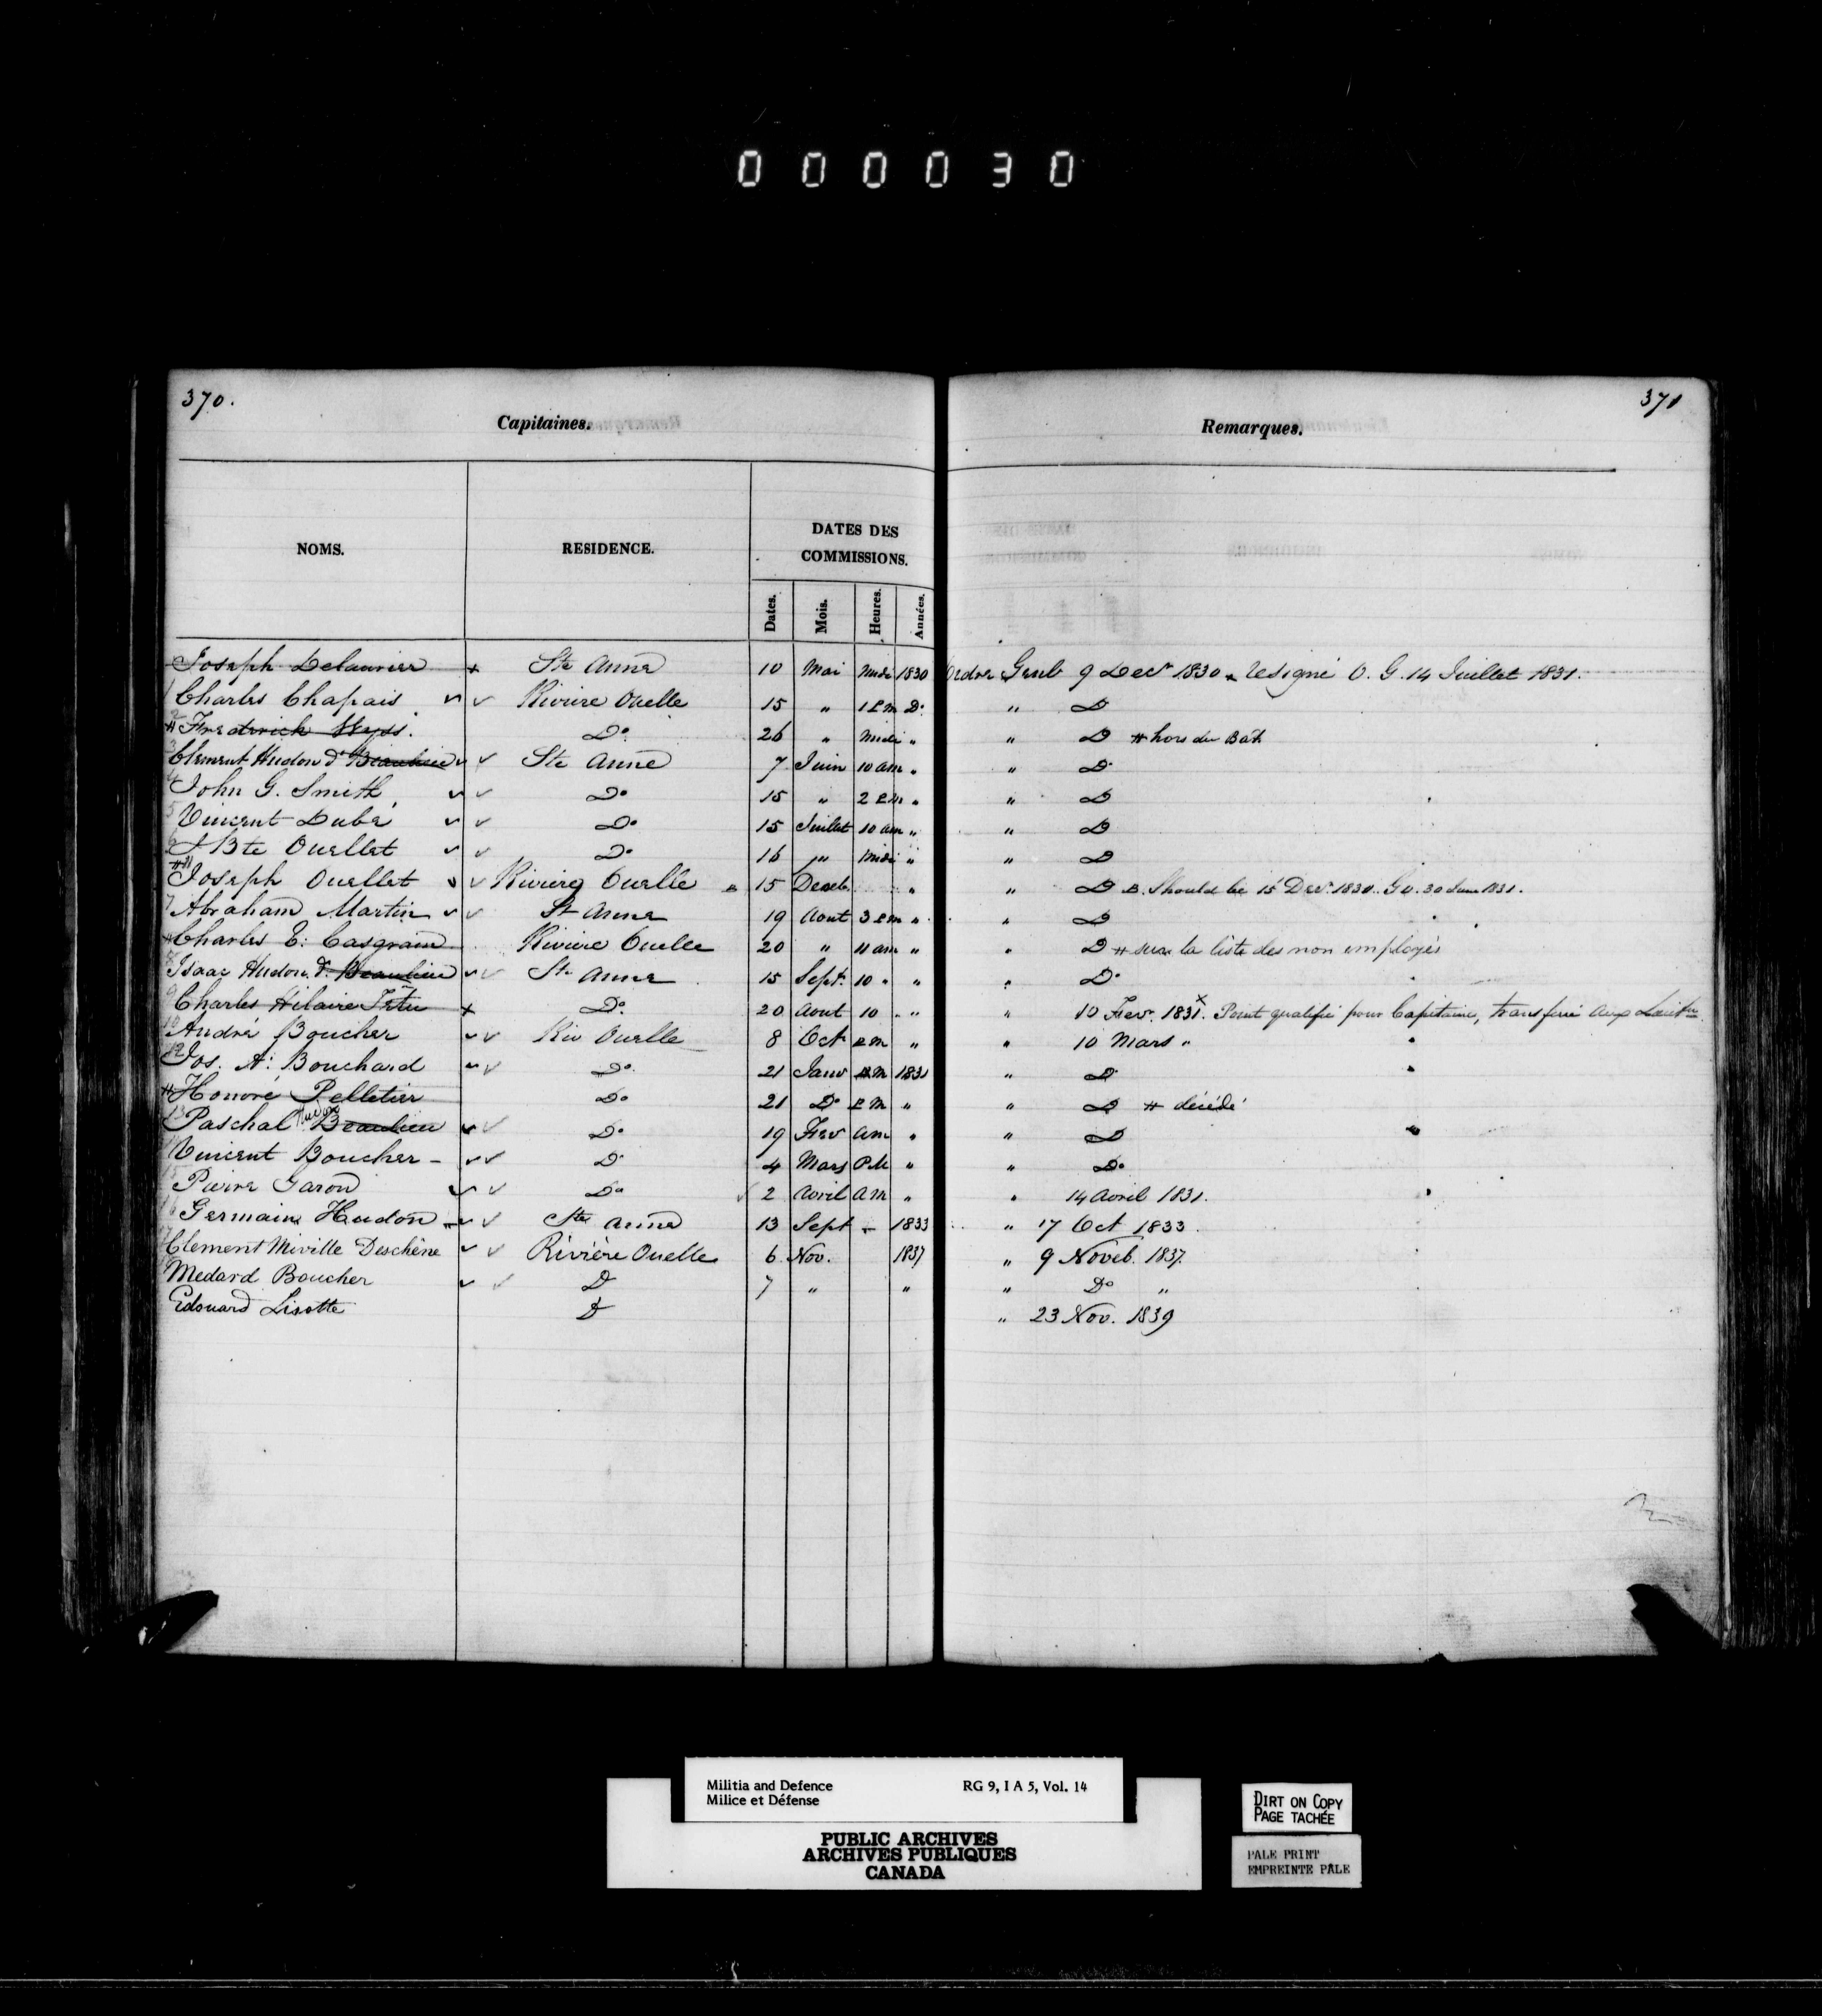 000030
370.
371
Capitaines.
Remarques.
NOMS.
RESIDENCE.
DATES DES
COMMISSIONS.
Dates.
Mois.
Heures.
Années.
Joseph Delaurier + Ste Anne 10 Mai Midi 1830 Ordre Genl 9 Decr 1830 resigné O. G. 14 Juillet 1831.
1 Charles Chapais Riviere Ouelle 15 " 1 PM Do " D
2 # Frederick Do 26 " Midi " " D # hors du Bat.
3 Clement Hudon d. Beaulieu Ste Anne 7 Juin 10 am " " D
4 John G. Smith Do 15 " 2 PM " " D
5 Vincent Dubé Do 15 Juillet 10 am " " D
6 J Bte Ouellet Do 16 " Midi " " D
Joseph Ouellet Riviere Ouelle B 15 Deceb " " D B. Should be 15 Decr 1830. G O. 30 June 1831.
7 Abraham Martin St Anne 19 Aout 3 PM " " D
# Charles E. Casgrain Riviere Ouelle 20 " 11 am " " D # sur la liste des non employés
8 Isaac Hudon d. Beaulieu Ste Anne 15 Sept. 10 " " " Do
9 Charles Hilaire Tetu + Do 20 Aout 10 " " " 10 Fevr. 1831 x. Point qualifié pour Capitaine, transferé aux Lieutns
10 André Boucher Riv Ouelle 8 Oct PM " " 10 Mars "
12 Jos. A. Bouchard Do 21 Janv PM 1831 " D
# Honoré Pelletier Do 21 Do PM " " D # décédé
13 Paschal Hudon Beaulieu Do 19 Fev am " " D
Vincent Boucher - Do 4 Mars PM " " Do
15 Pierre Garon Do 2 Avril am " " 14 Avril 1831.
16 Germain Hudon Ste Anne 13 Sept - 1833 " 17 Oct 1833.
17 Clement Miville Deschêne Rivière Ouelle 6 Nov. 1837 " 9 Noveb. 1837.
Medard Boucher D 7 " " " Do "
Edouard Lisotte D " 23 Nov. 1839
Militia and Defence RG 9, I A 5, Vol. 14
Milice et Défense
PUBLIC ARCHIVES
ARCHIVES PUBLIQUES
CANADA
DIRT ON COPY
PAGE TACHÉE
PALE PRINT
EMPREINTE PÂLE